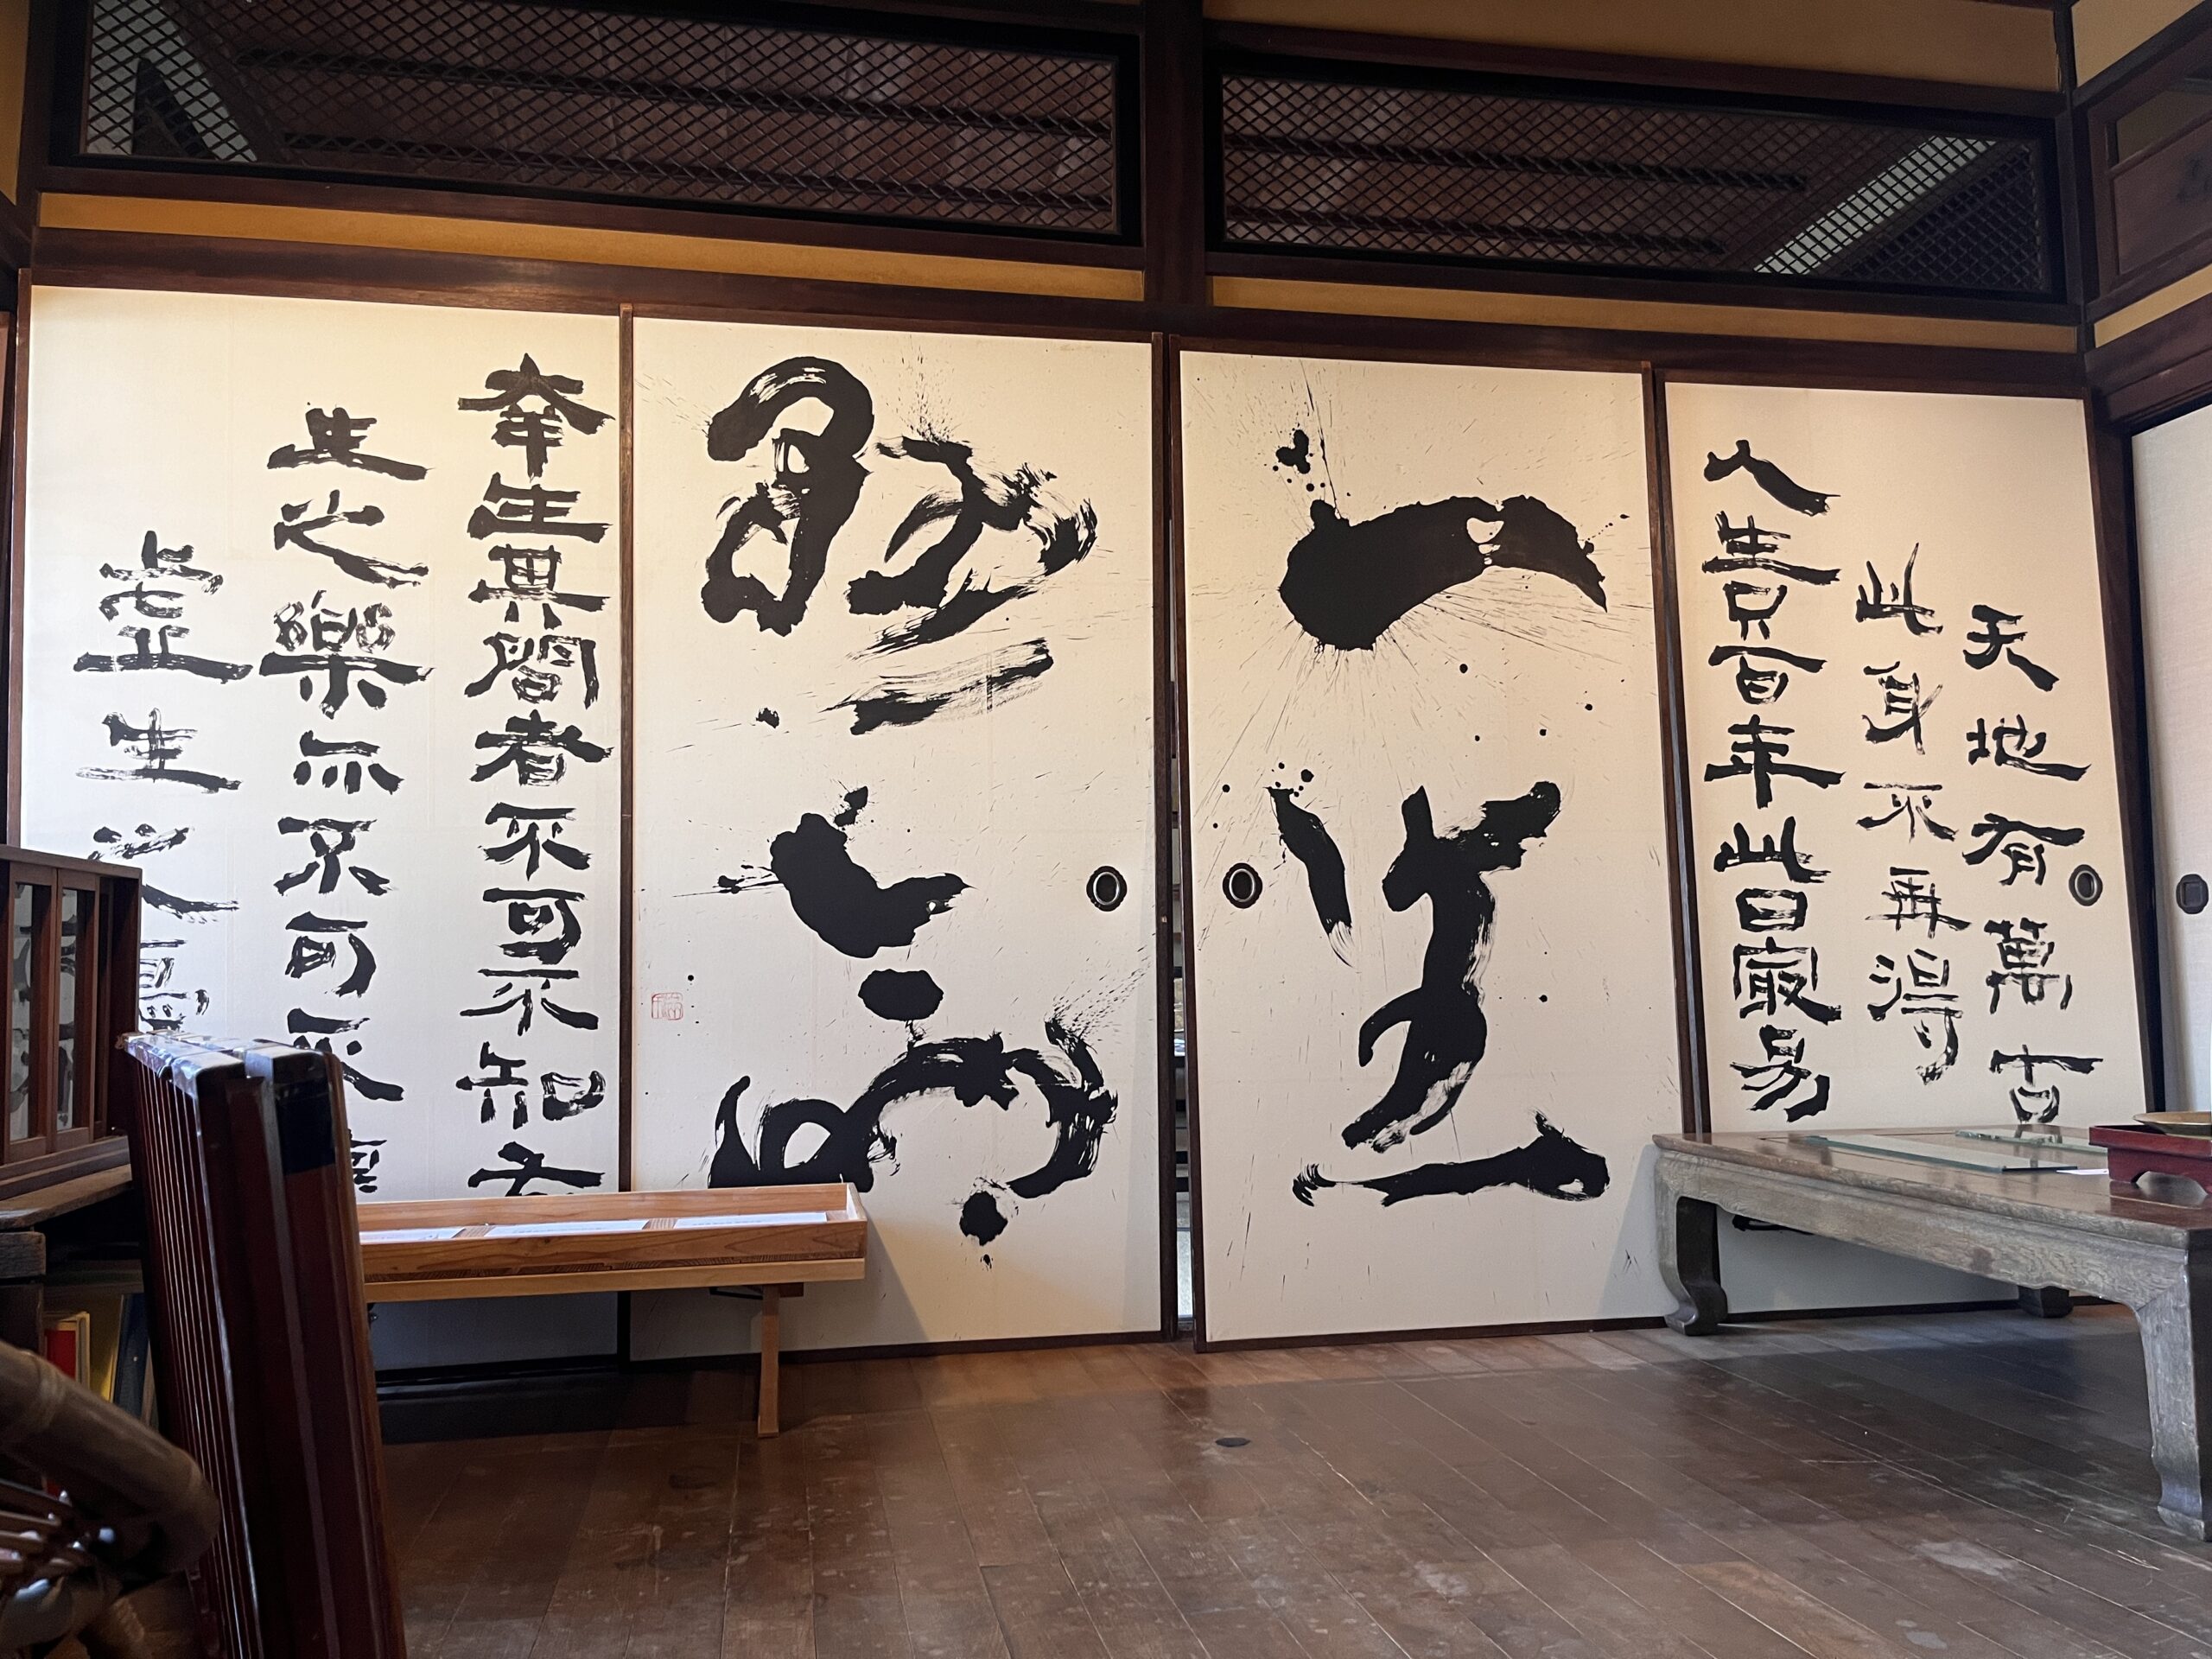 天地有萬古
此身不再得
人生只百年此日最易
一生
幸生其間者不可不知有
生之樂亦不可不
虚生之憂